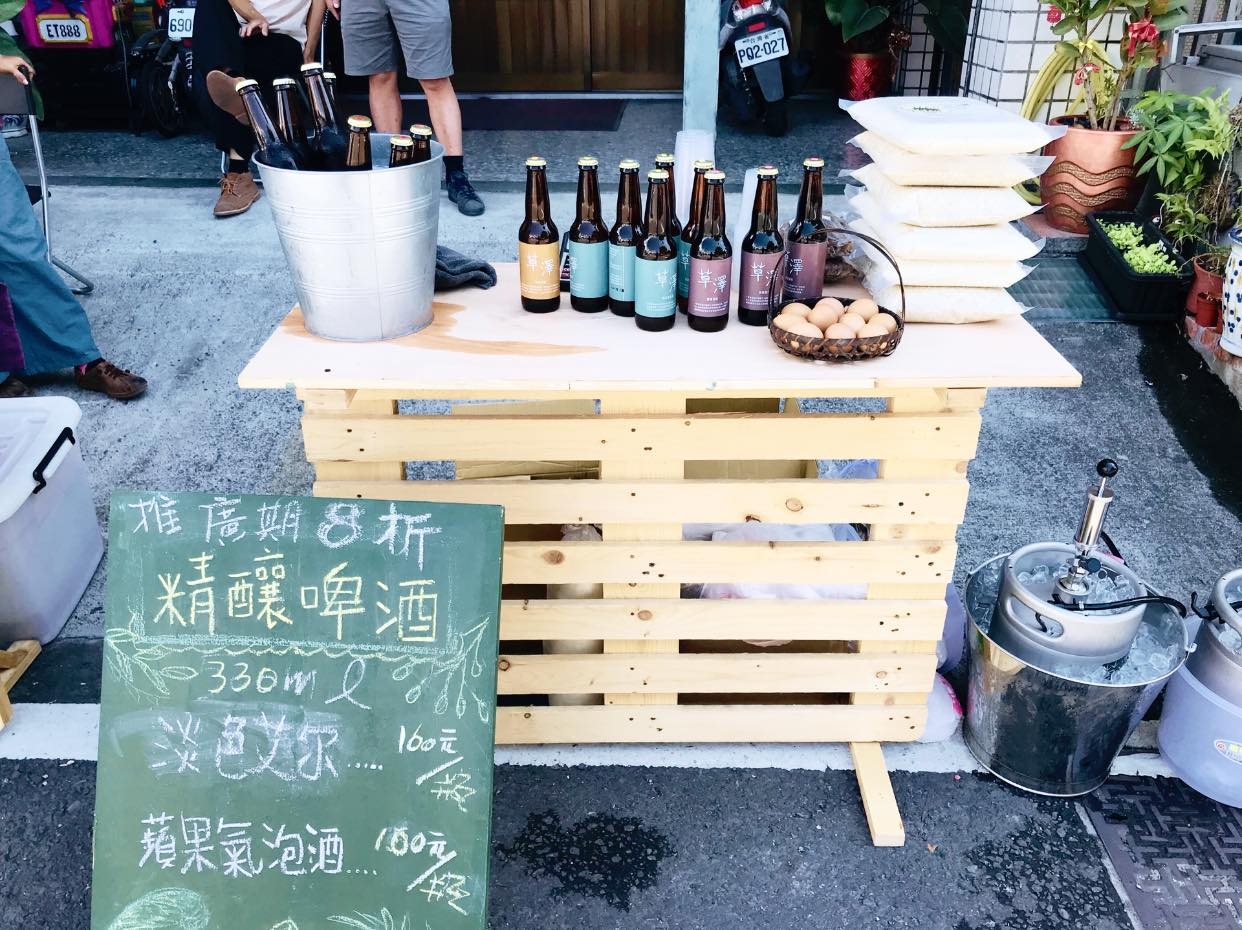 ET888
690
台灣省
PQ2·027
草澤
草澤
草澤
草澤
推廣期8折
精釀啤酒
330ml
淡色艾尔..... 160元/瓶
蘋果氣泡酒.... 160元/瓶